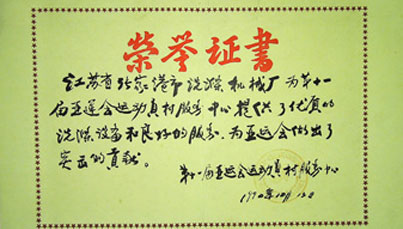 榮誉证書
江苏省张家港市洗滌机械厂为第十一
届亚运会运动员村服务中心提供了优质的
洗滌设备和良好的服务，为亚运会做出了
突出的贡献。
第十一届亚运会运动员村服务中心
一九九〇年十月